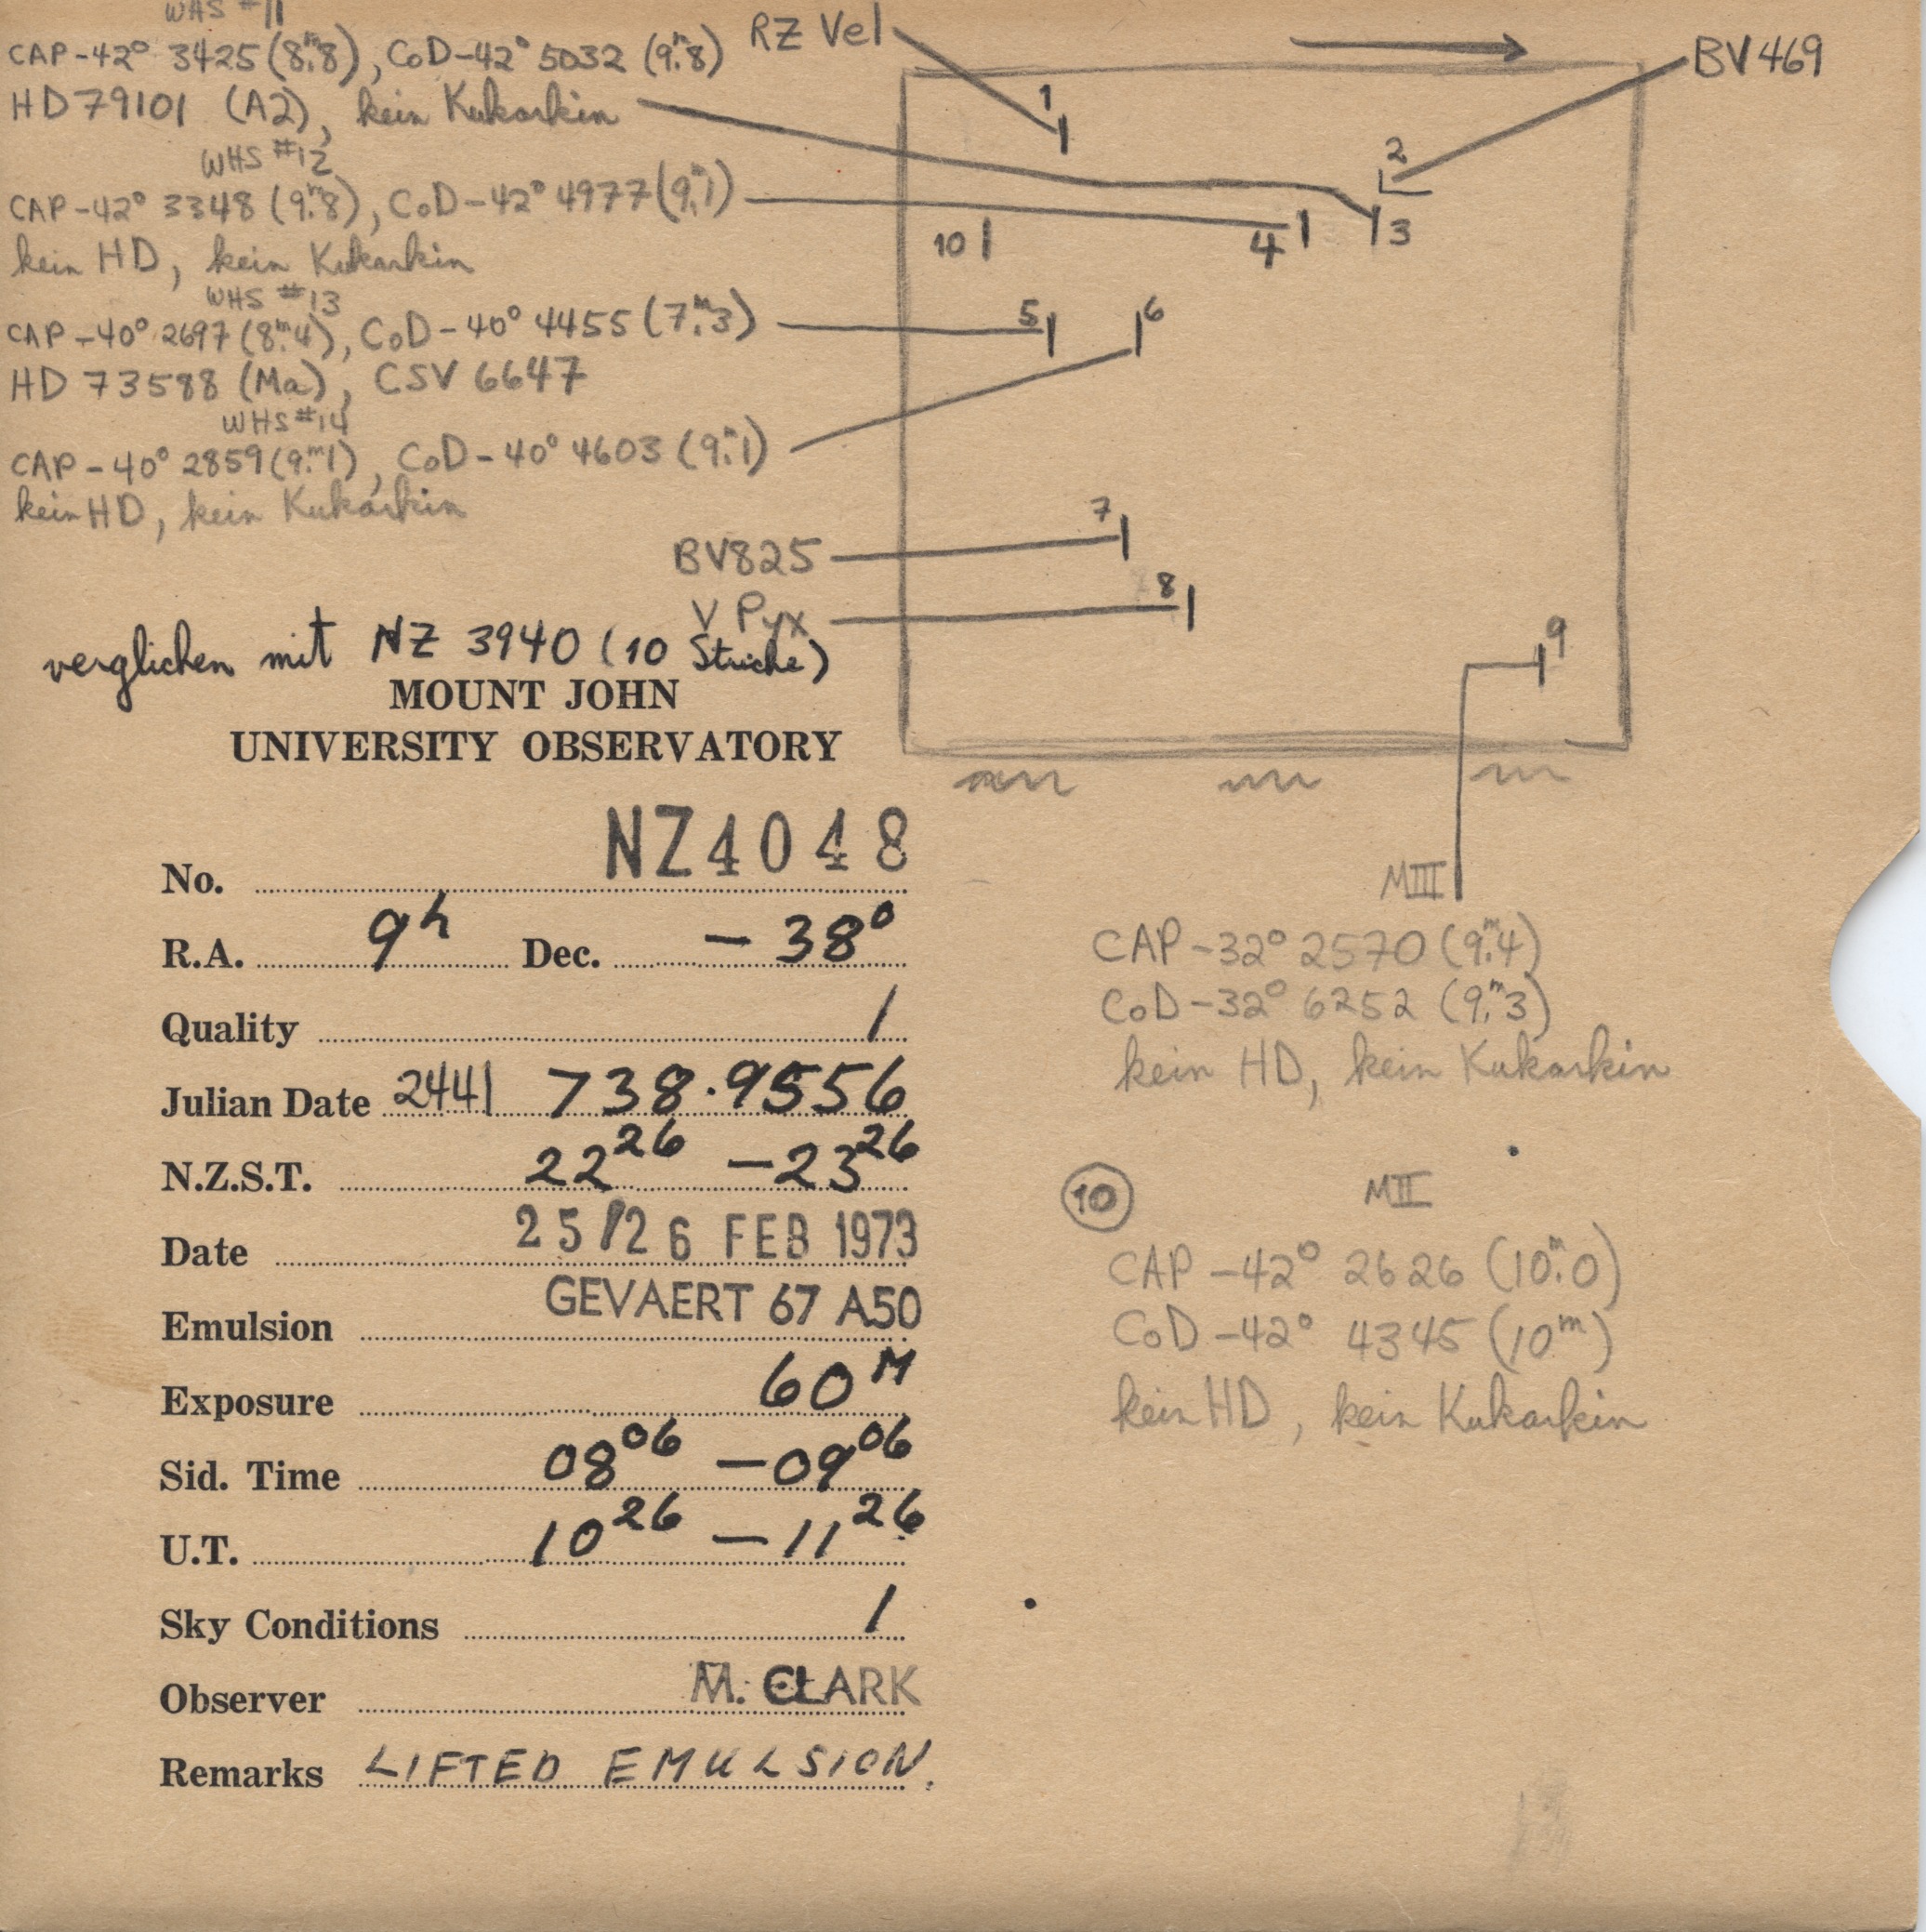 WHS #11
CAP-42° 3425 (8.ᵐ8), CoD-42° 5032 (9.ᵐ8)
HD 79101 (A2), kein Kukarkin
WHS #12
CAP-42° 3348 (9.ᵐ8), CoD-42° 4977 (9.ᵐ1)
kein HD, kein Kukarkin
WHS #13
CAP-40° 2697 (8.ᵐ4), CoD-40° 4455 (7.ᵐ3)
HD 73588 (Ma), CSV 6647
WHS #14
CAP-40° 2859 (9.ᵐ1), CoD-40° 4603 (9.ᵐ1)
kein HD, kein Kukarkin
RZ Vel
BV 469
1
2
3
4
10
5
6
7
8
9
BV825
V Pyx
verglichen mit NZ 3940 (10 Striche)
MOUNT JOHN
UNIVERSITY OBSERVATORY
No. NZ4048
R.A. 9ʰ Dec. -38°
Quality 1
Julian Date 2441 738.9556
N.Z.S.T. 22²⁶ - 23²⁶
Date 25/26 FEB 1973
Emulsion GEVAERT 67 A50
Exposure 60ᴹ
Sid. Time 08⁰⁶ - 09⁰⁶
U.T. 10²⁶ - 11²⁶
Sky Conditions 1
Observer M. CLARK
Remarks LIFTED EMULSION.
MIII
CAP-32° 2570 (9.ᵐ4)
CoD-32° 6252 (9.ᵐ3)
kein HD, kein Kukarkin
10 MII
CAP-42° 2626 (10.ᵐ0)
CoD-42° 4345 (10ᵐ)
kein HD, kein Kukarkin